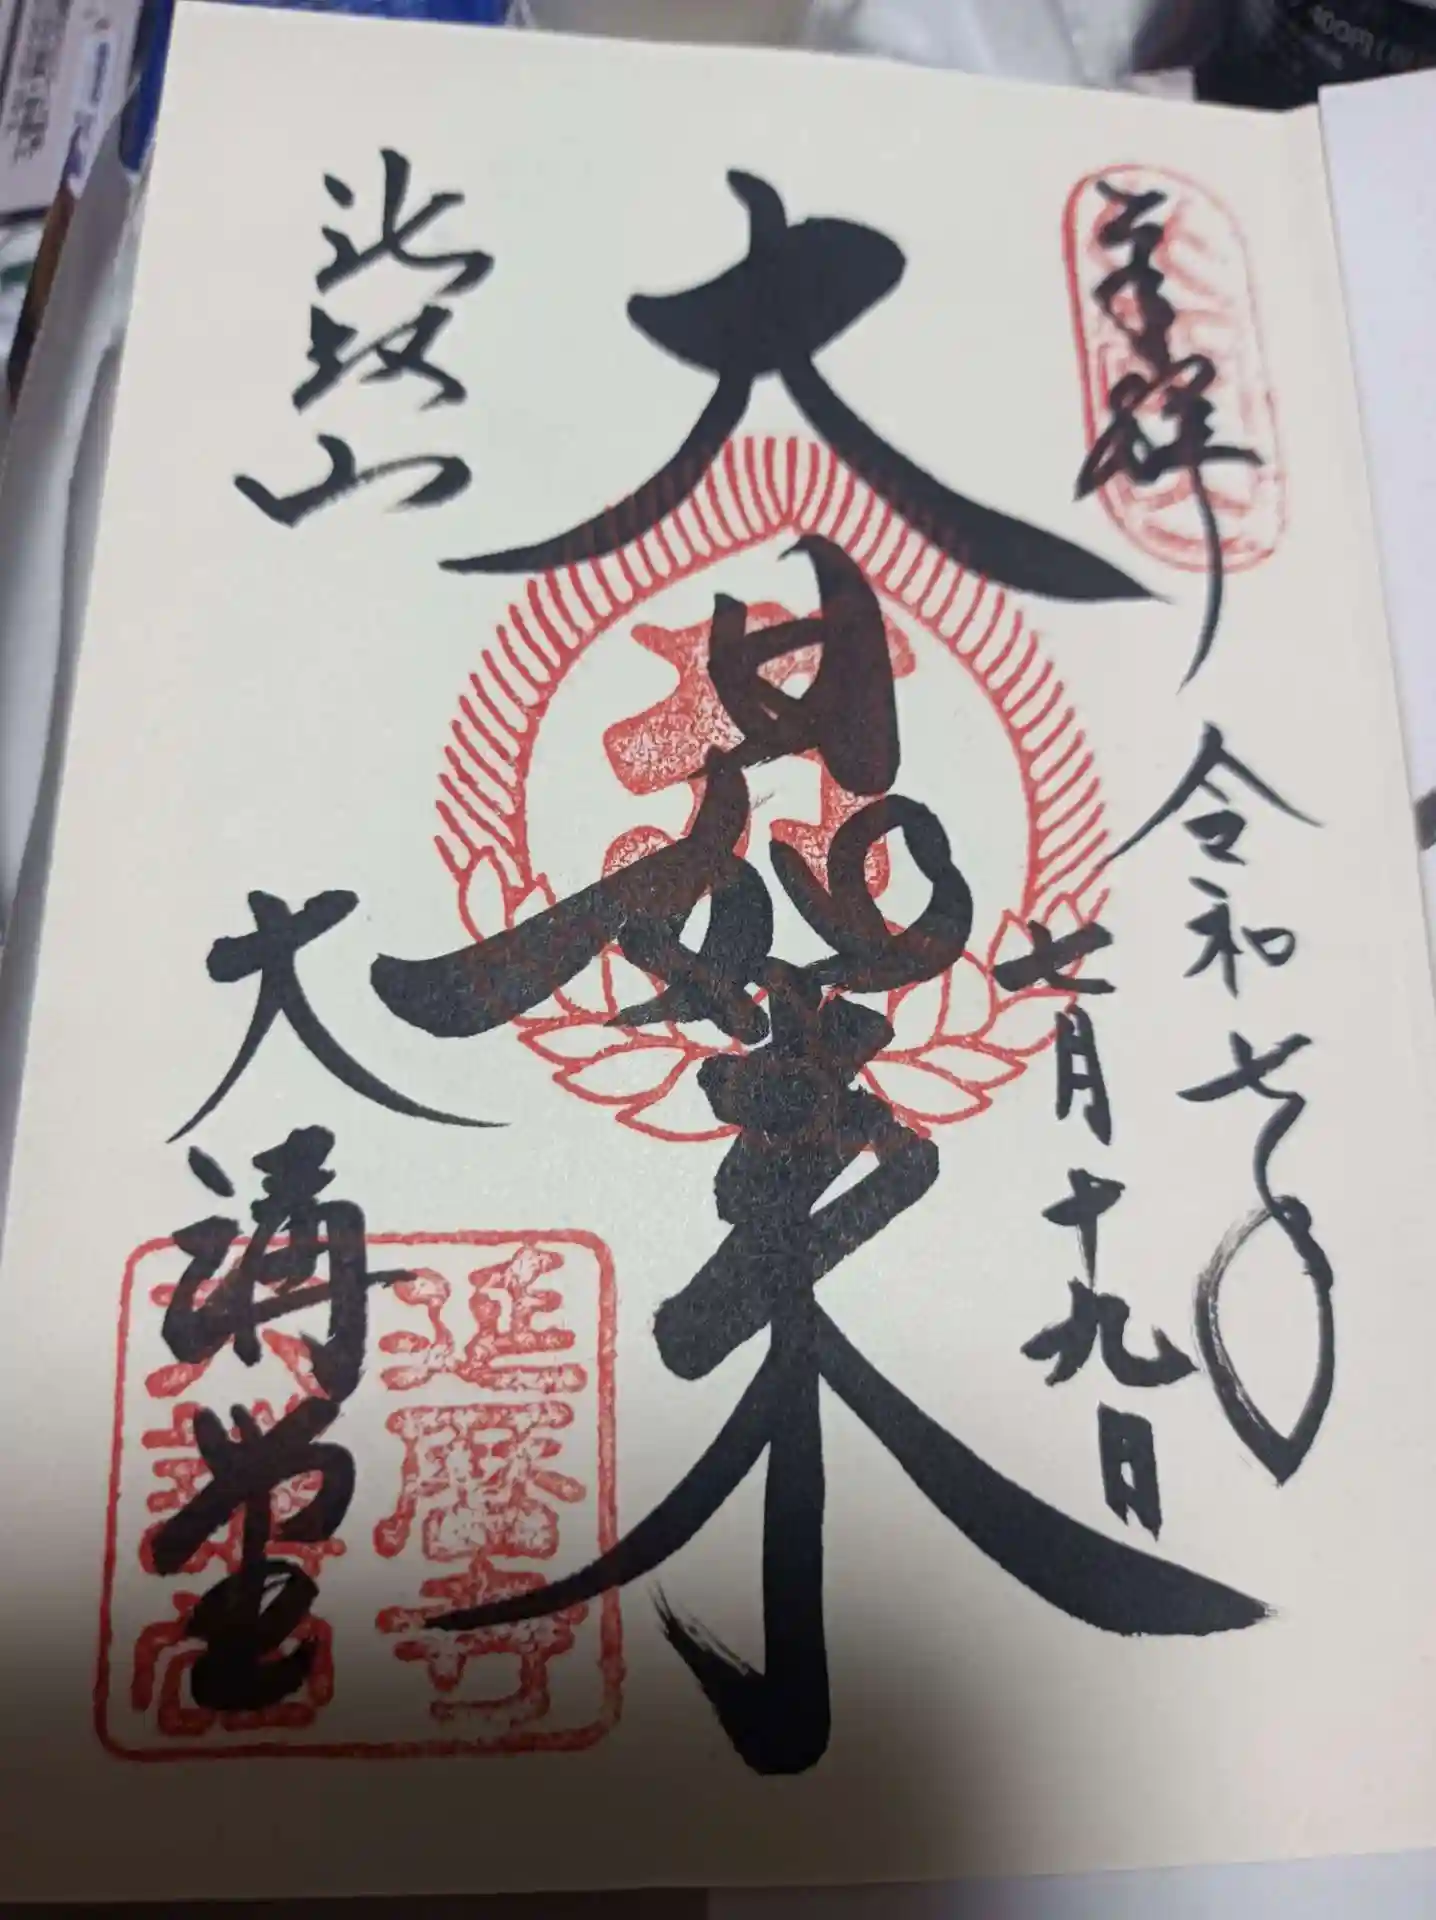 奉拝
令和七年
七月十九日
大日如来
比叡山
大講堂
延暦寺